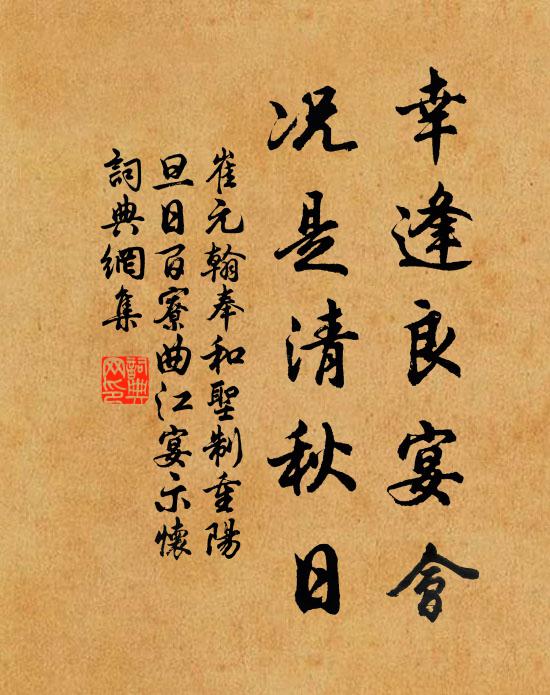 幸逢良宴會
况是清秋日
崔元翰奉和聖制重陽
旦日百寮曲江宴示懷
詞典網集
詞典
网印